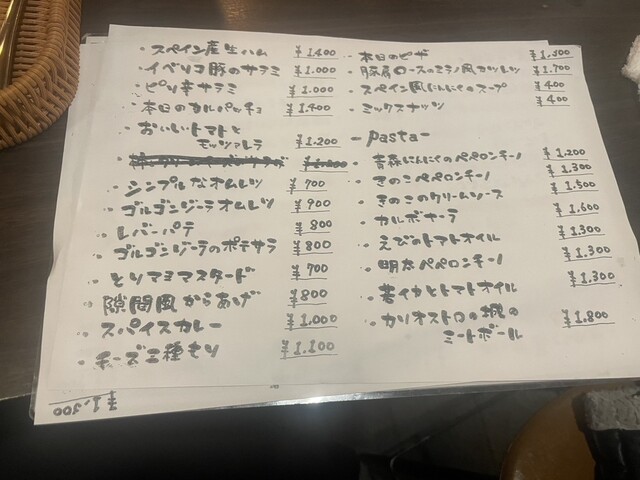 ・スペイン産生ハム ¥1.400
・イベリコ豚のサラミ ¥1.000
・ピリ辛サラミ ¥1.000
・本日のカルパッチョ ¥1.400
・おいしいトマトと
モッツァレラ ¥1.200
・シンプルなオムレツ ¥700
・ゴルゴンゾーラオムレツ ¥900
・レバーパテ ¥800
・ゴルゴンゾーラのポテサラ ¥800
・とりマヨマスタード ¥700
・隙間風からあげ ¥800
・スパイスカレー ¥1.000
・チーズ三種もり ¥1.100
・本日のピザ
・豚肩ロースのミラノ風カツレツ ¥1.700
・スペイン風にんにくのスープ ¥400
・ミックスナッツ ¥400
-pasta-
・青森にんにくのペペロンチーノ ¥1.200
・きのこペペロンチーノ ¥1.300
・きのこのクリームソース ¥1.500
・カルボナーラ ¥1.600
・えびのトマトオイル ¥1300
・明太ペペロンチーノ ¥1.300
・若イカとトマトオイル ¥1.300
・カリオストロの城の
ミートボール ¥1.800